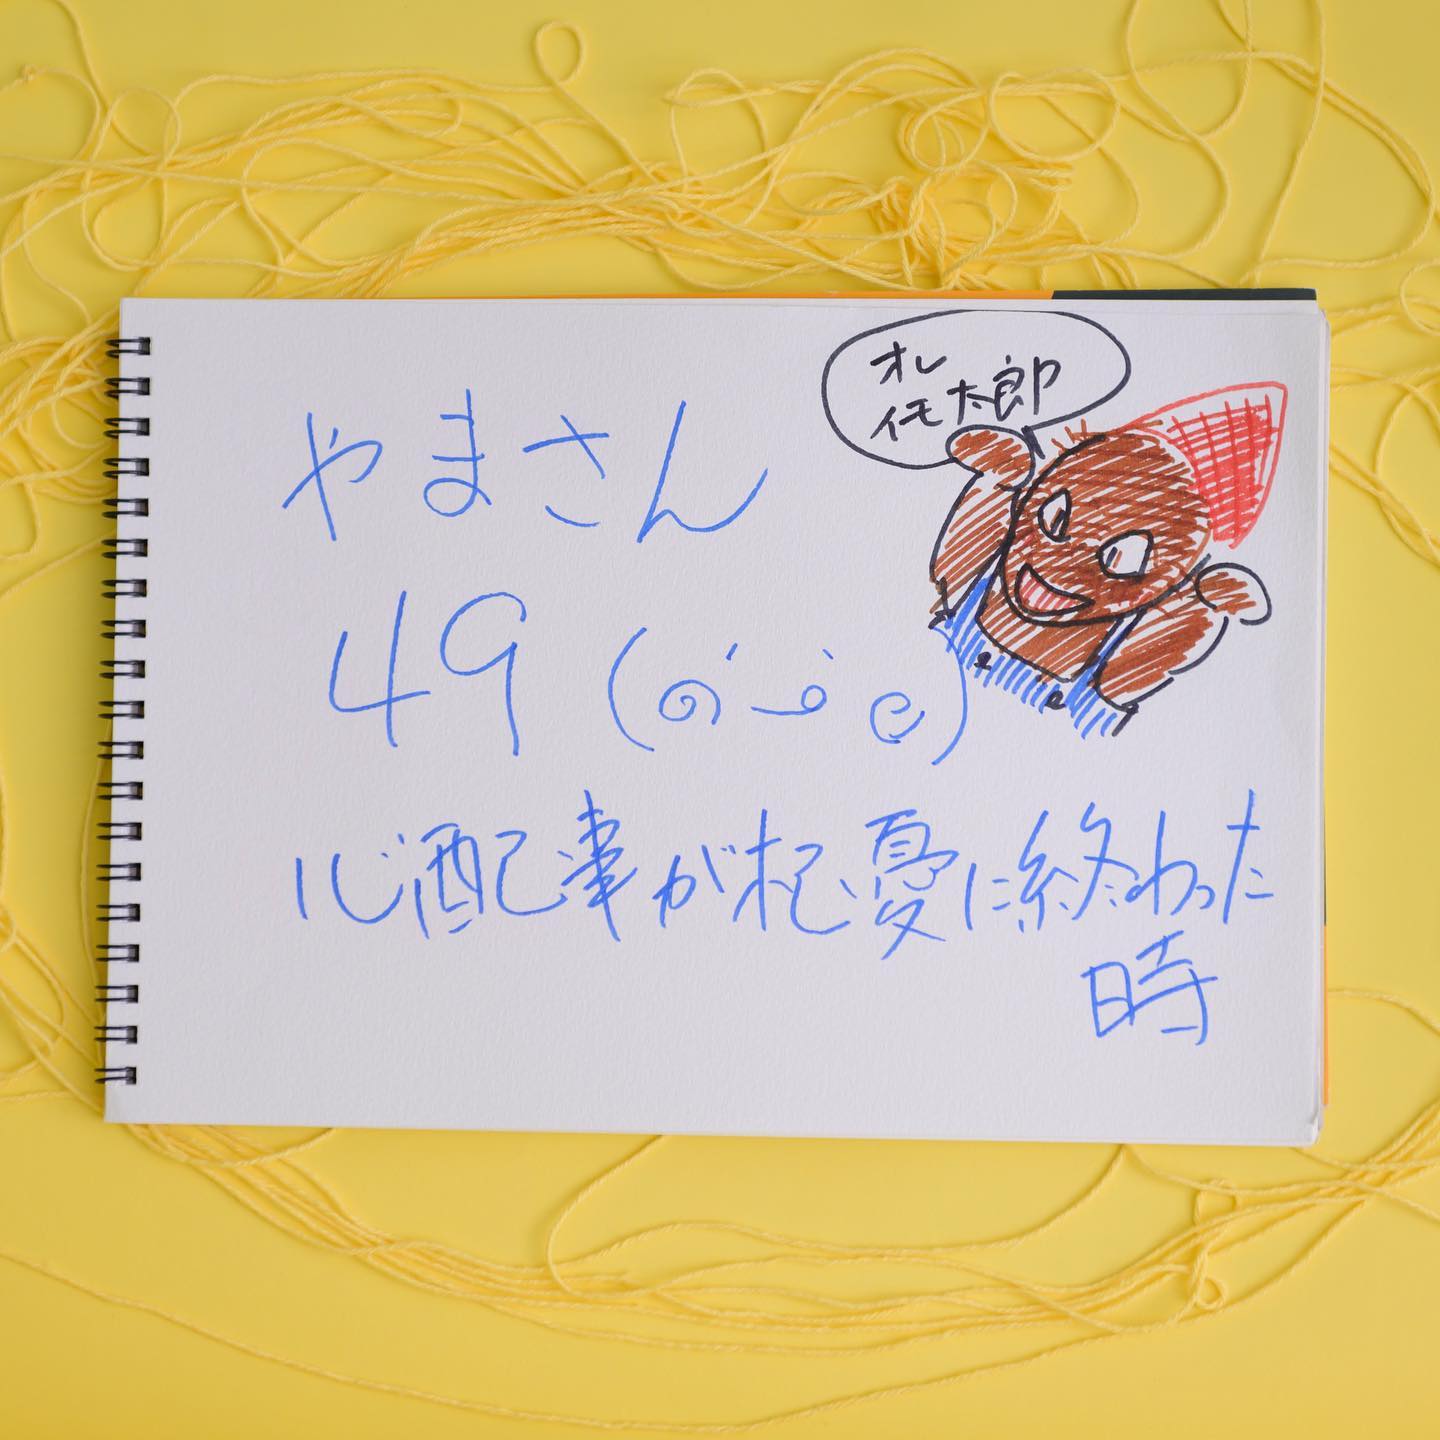 オレ
イモ太郎
やまさん
49
心配事が杞憂に終わった
時